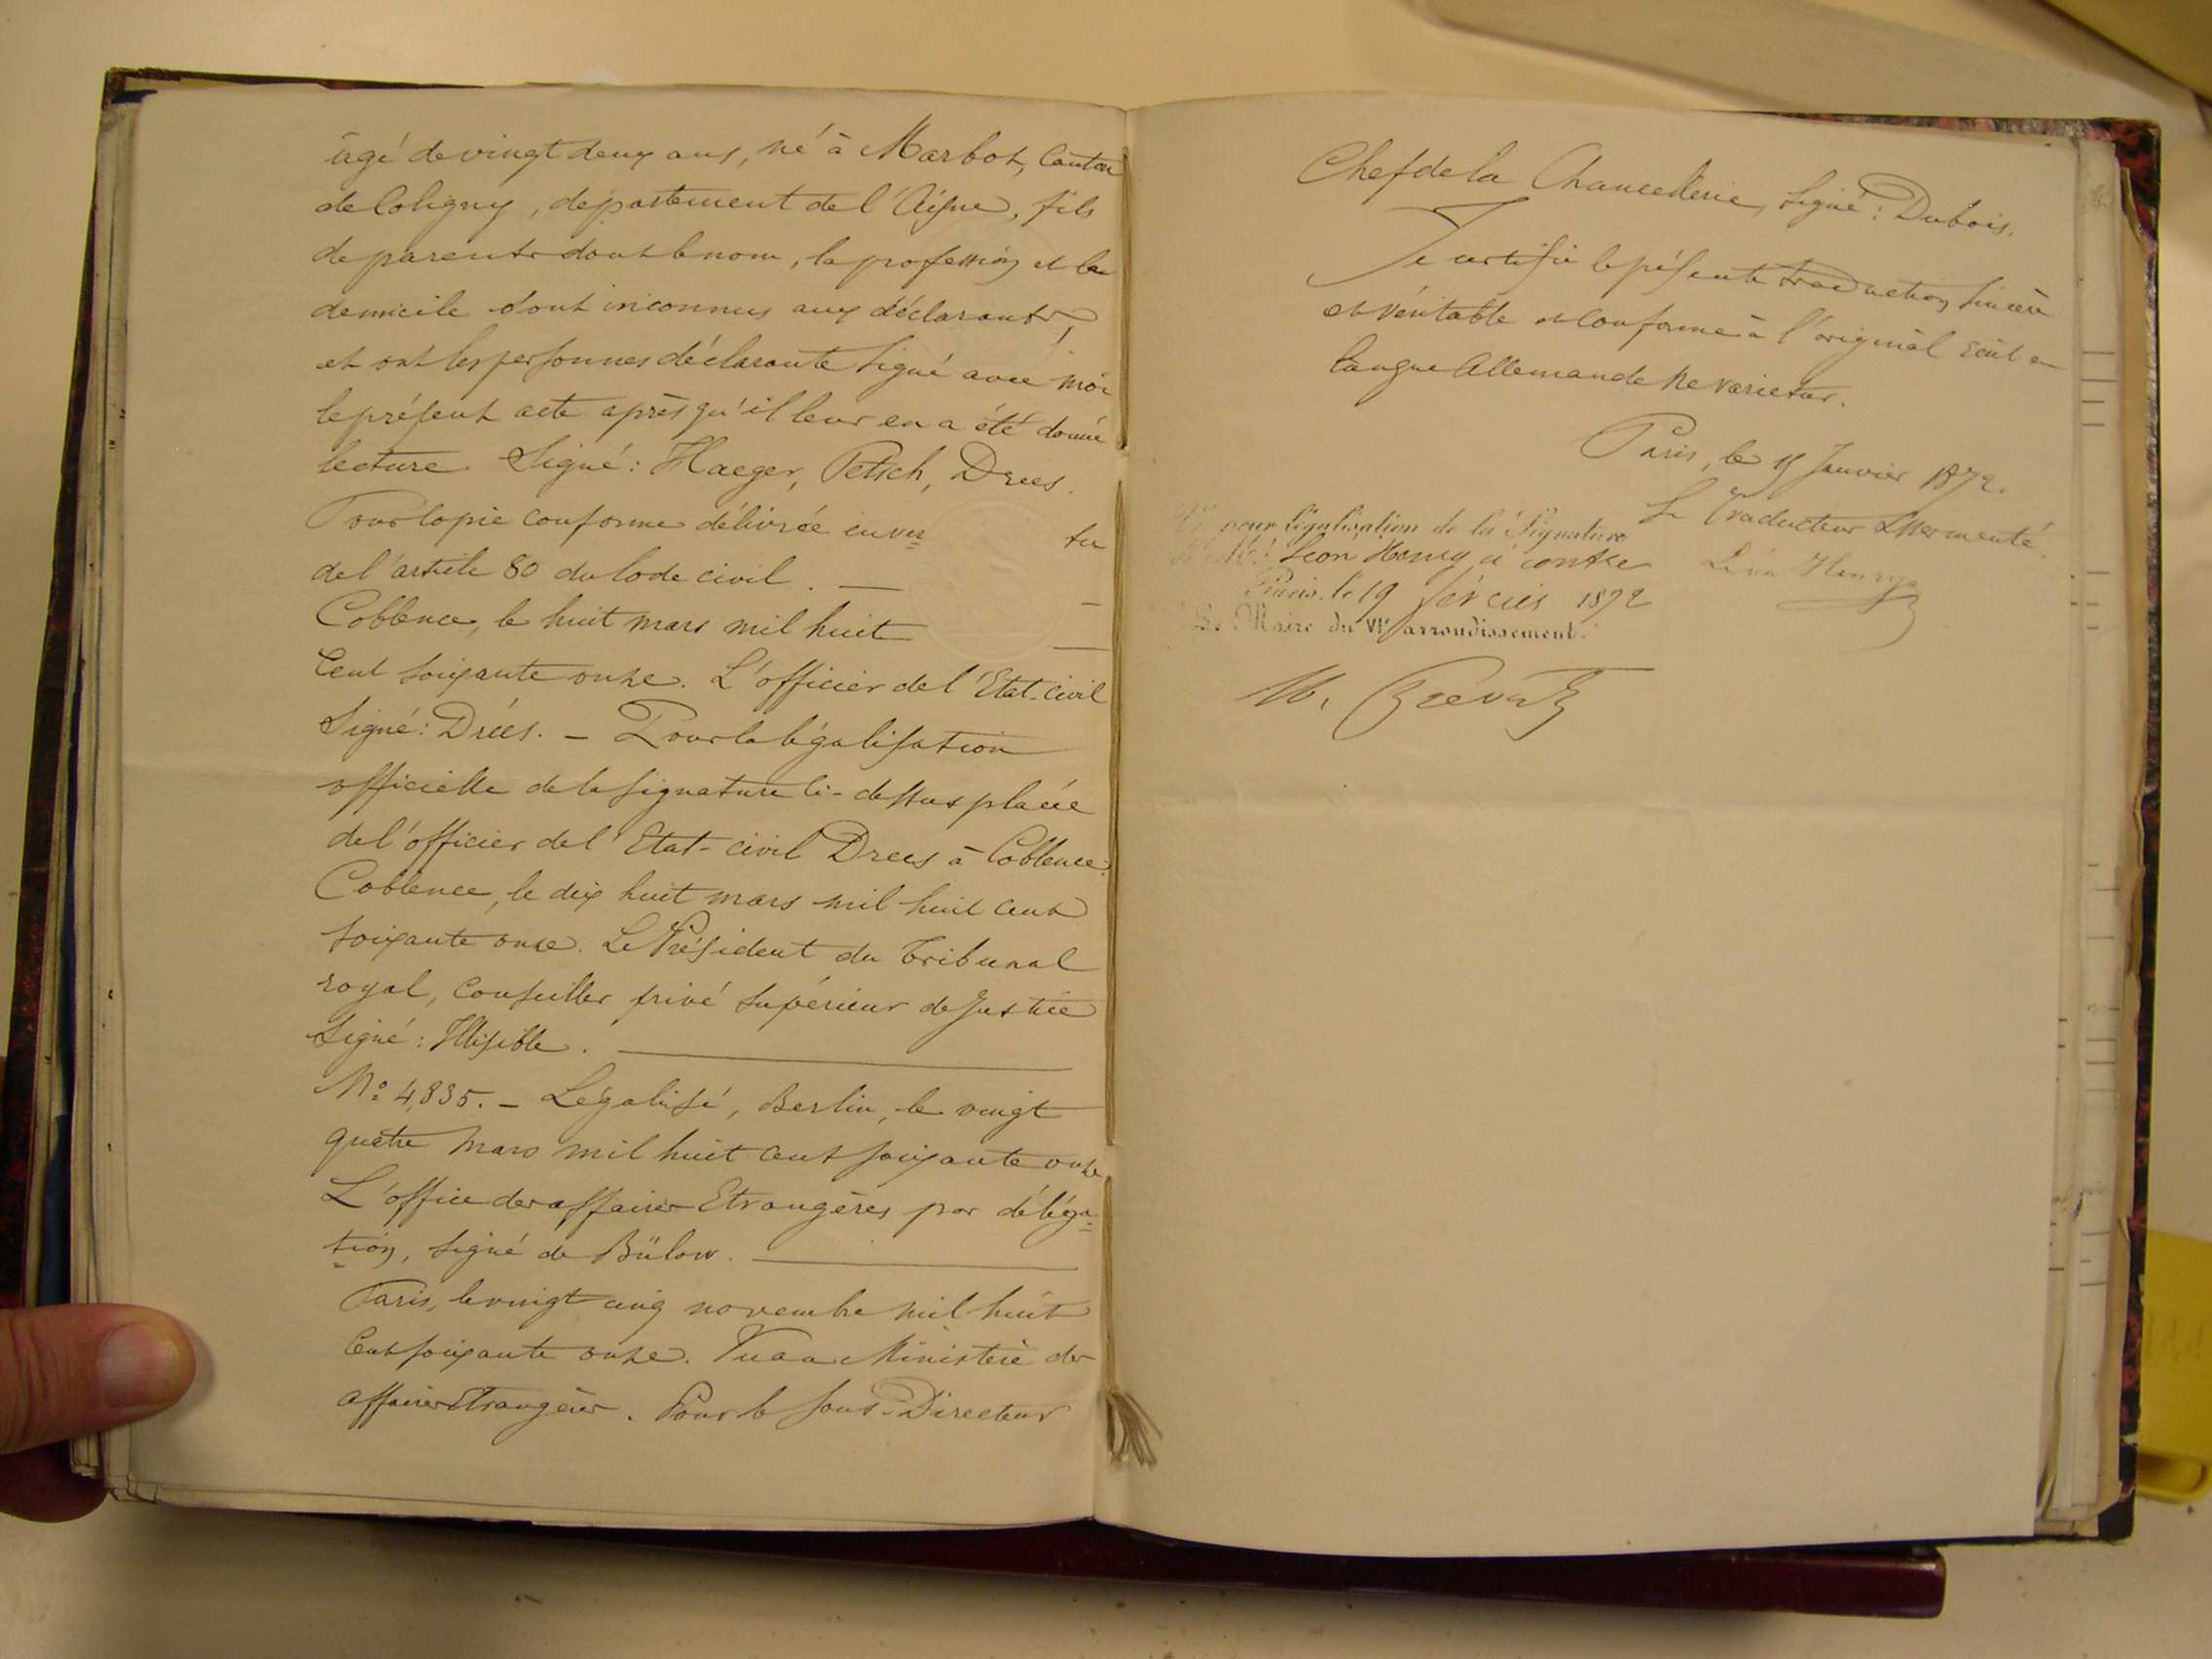 âgé de vingt deux ans, né à Marbot, Canton
de Coligny, département de l'Aisne, fils
de parents dont le nom, la profession et le
domicile sont inconnus aux déclarants,
et ont les personnes déclarante signé avec moi
le présent acte après qu'il leur en a été donné
lecture. Signé: Haeger, Petsch, Drees.
Pour Copie conforme délivrée en ver= tu
de l'article 80 du Code civil. —
Coblence, le huit mars mil huit —
Cent soixante onze. L'officier de l'Etat-civil
Signé: Drees. — Pour la légalisation
officielle de la signature ci-dessus placée
de l'officier de l'Etat-civil Drees à Coblence.
Coblence, le dix huit mars mil huit cent
soixante onze. Le Président du Tribunal
royal, Conseiller privé supérieur de Justice
Signé: Illisible.
No 4,835. — Légalisé, Berlin, le vingt
quatre mars mil huit cent soixante onze
L'office des affaires Etrangères par déléga=
=tion, signé de Bülow.
Paris, le vingt cinq novembre mil huit
Cent soixante onze. Vu au Ministère des
affaires Etrangères. Pour le sous-Directeur
Chef de la Chancellerie, Signé: Dubois.
Je certifie la présente traduction sincère
et véritable et conforme à l'original écrit en
langue Allemande Ne varietur.
Paris, le Janvier 1872.
Le Traducteur assermenté.
Léon Henry
pour légalisation de la Signature
de M. Léon Henry ci contre
Paris, le 19 février 1872
Le Maire du VIe arrondissement.